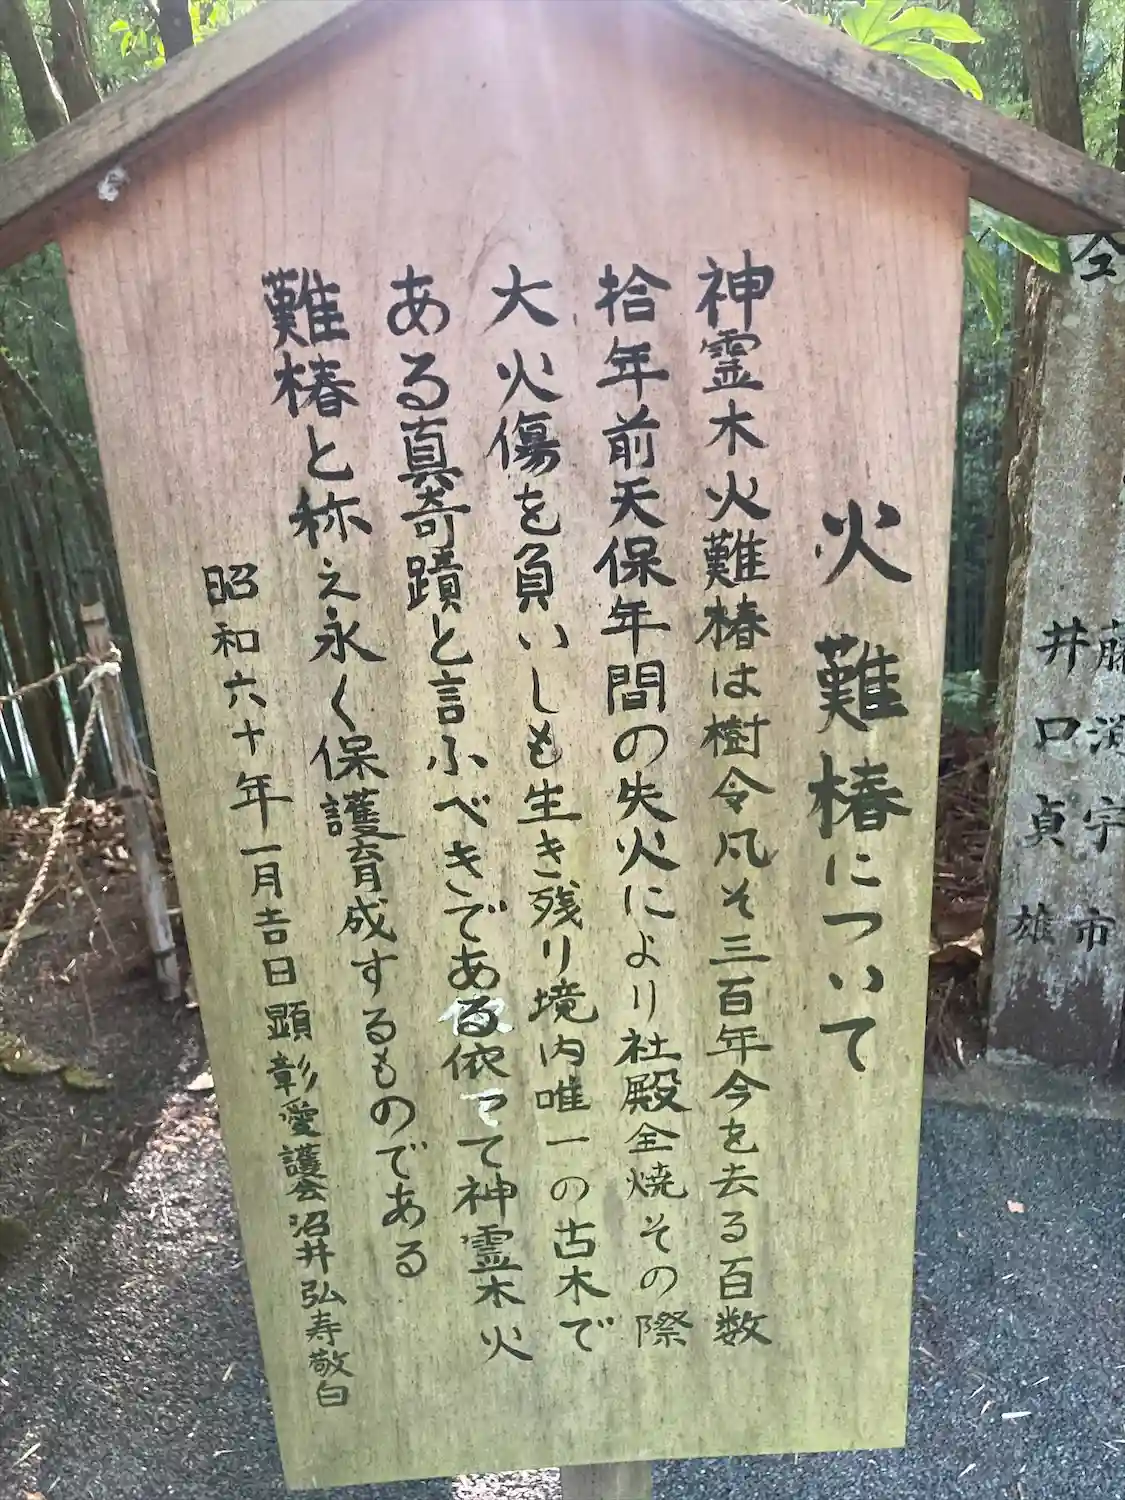 火難椿について
神霊木火難椿は樹令凡そ三百年今を去る百数
拾年前天保年間の失火により社殿全焼その際
大火傷を負いしも生き残り境内唯一の古木で
ある真奇蹟と言ふべきである依って神霊木火
難椿と称え永く保護育成するものである
昭和六十年一月吉日顕彰愛護会沼井弘寿敬白
藤渕宇市
井口貞雄